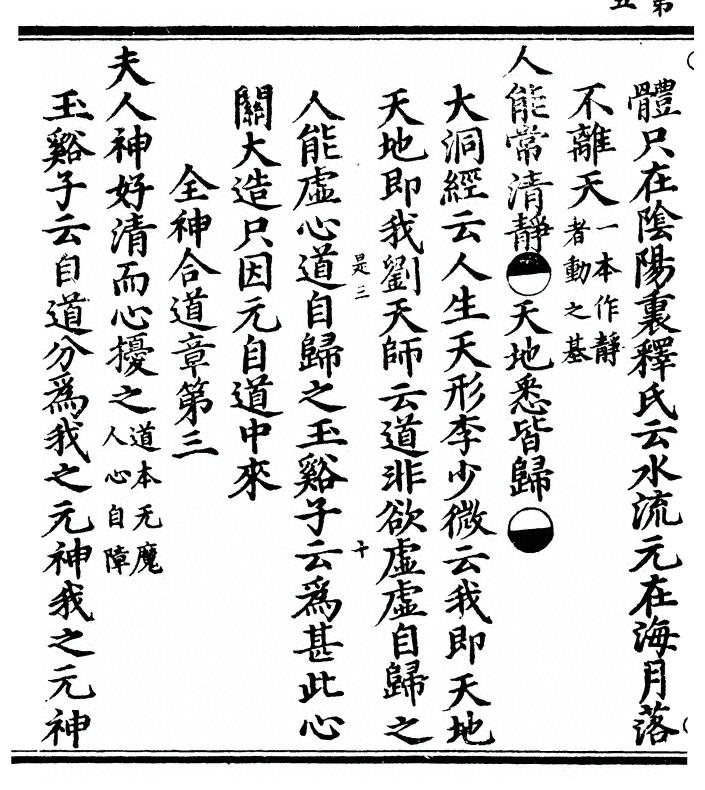 體只在陰陽裏釋氏云水流元在海月落
不離天一本作靜者動之基
人能常清靜◓天地悉皆歸◒
大洞經云人生天形李少微云我即天地
天地即我劉天師云道非欲虛虛自歸之
是三 十
人能虛心道自歸之玉谿子云爲甚此心
關大造只因元自道中來
全神合道章第三
夫人神好清而心擾之道本无魔人心自障
玉谿子云自道分爲我之元神我之元神